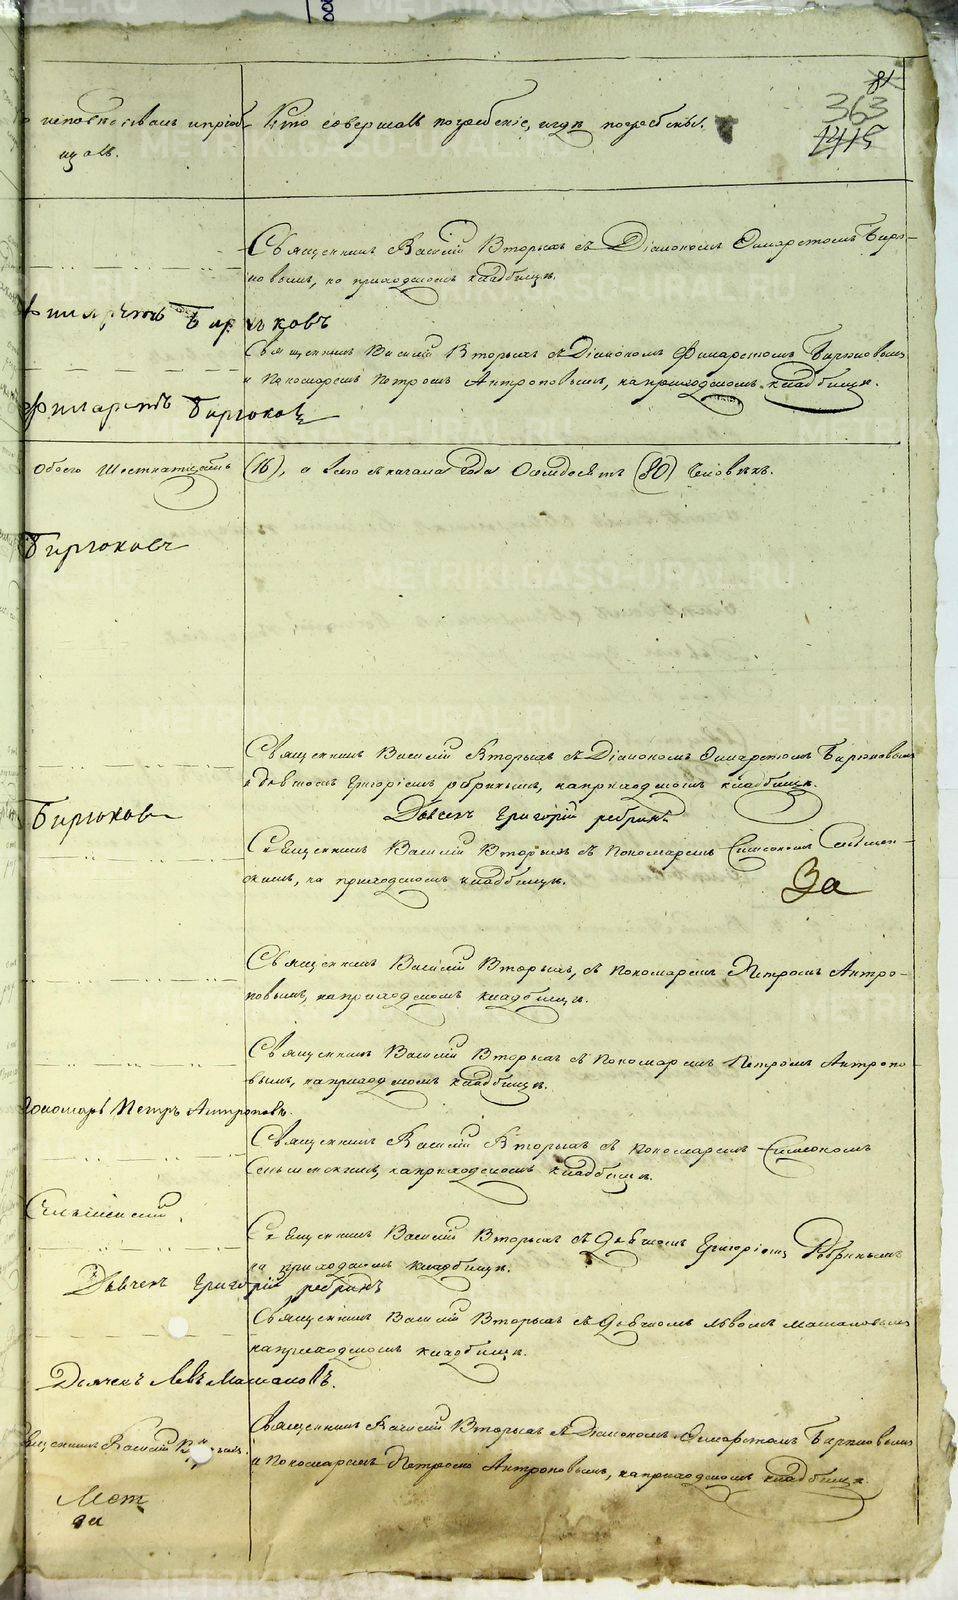 81
363
1415
исповѣдывалъ и пріоб-
щалъ.
Кто совершалъ погребеніе, и гдѣ погребены.
Священникъ Василій Вторыхъ съ Діакономъ Филаретомъ Бирю-
ковымъ, на приходскомъ кладбищѣ.
Филаретъ Бирюковъ
Священникъ Василій Вторыхъ съ Діакономъ Филаретомъ Бирюковымъ
и Пономаремъ Петромъ Антроповымъ, на приходскомъ кладбищѣ.
Филаретъ Бирюковъ
Обоего Шестнатцать (16), а всего съ начала года Осемдесятъ (80) Человѣкъ.
Бирюковъ
Священникъ Василій Вторыхъ съ Діакономъ Филаретомъ Бирюковымъ
и Дьячкомъ Григоріемъ Ребринымъ, на приходскомъ кладбищѣ.
Бирюковъ
Дьячекъ Григорій Ребринъ
Священникъ Василій Вторыхъ съ Пономаремъ Симеономъ
на приходскомъ кладбищѣ.
За
Священникъ Василій Вторыхъ, съ Пономаремъ Петромъ Антро-
повымъ, на приходскомъ кладбищѣ.
Священникъ Василій Вторыхъ съ Пономаремъ Петромъ Антропо-
вымъ, на приходскомъ кладбищѣ.
Пономарь Петръ Антроповъ.
Священникъ Василій Вторыхъ съ Пономаремъ Симеономъ
на приходскомъ кладбищѣ.
Священникъ Василій Вторыхъ съ Дьячкомъ Григоріемъ Ребринымъ
на приходскомъ кладбищѣ.
Дьячекъ Григорій Ребринъ
Священникъ Василій Вторыхъ съ Дьячкомъ Львомъ Машановымъ
на приходскомъ кладбищѣ.
Дьячекъ Левъ Машановъ.
Священникъ Василій Вторыхъ съ Діакономъ Филаретомъ Бирюковымъ
и Пономаремъ Петромъ Антроповымъ, на приходскомъ кладбищѣ.
Священникъ Василій Вторыхъ.
METRIKI.GASO-URAL.RU